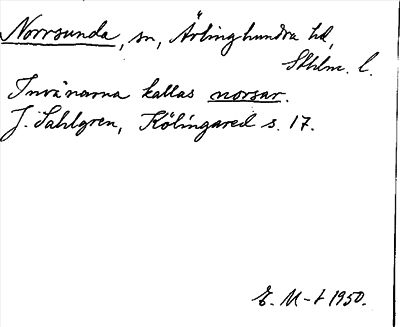 Norrsunda, sn, Ärlinghundra hd,
Sthlm. l.
Invånarna kallas norsar.
J. Sahlgren, Kölingared s. 17.
E. M-t 1950.